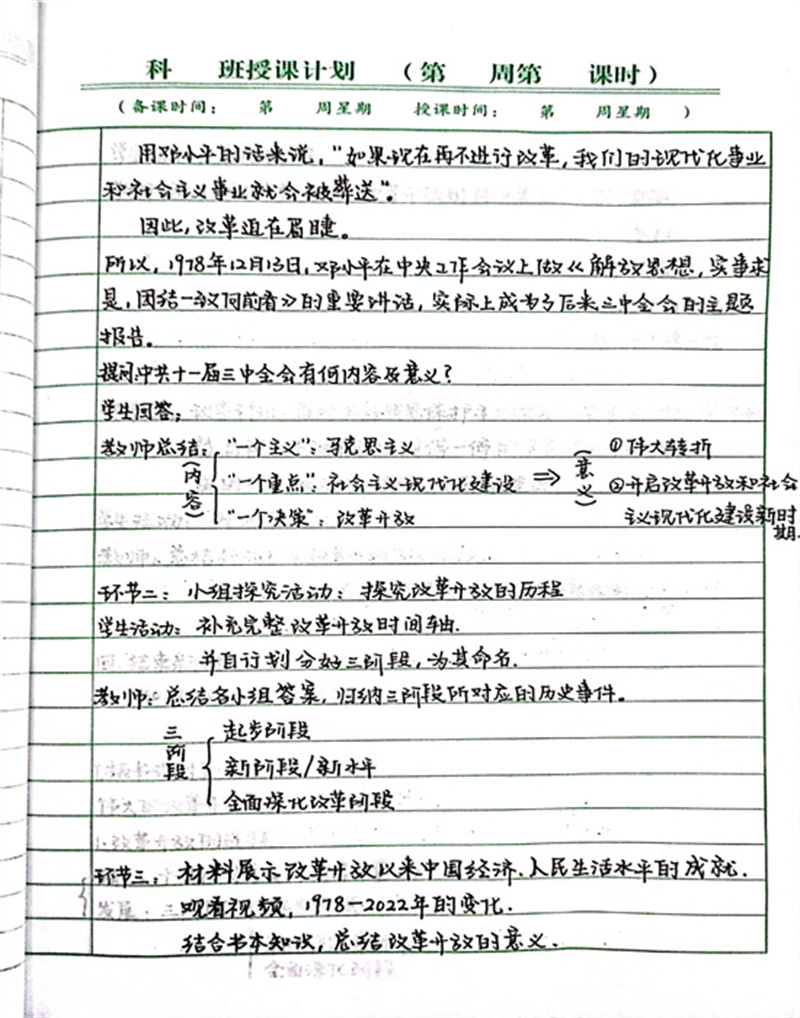 科 班授课计划 （第 周第 课时）
（备课时间： 第 周星期 授课时间： 第 周星期 ）
用邓小平的话来说，"如果现在再不进行改革，我们的现代化事业
和社会主义事业就会被葬送"。
因此，改革迫在眉睫。
所以，1978年12月13日，邓小平在中央工作会议上做《解放思想，实事求
是，团结一致向前看》的重要讲话，实际上成为了后来三中全会的主题
报告。
提问：中共十一届三中全会有何内容及意义？
学生回答：
教师总结：（内容） "一个主义"：马克思主义 （意义） ①伟大转折
"一个重点"：社会主义现代化建设 ⇒ ②开启改革开放和社会
"一个决策"：改革开放 主义现代化建设新时期.
环节二：小组探究活动：探究改革开放的历程
学生活动：补充完整改革开放时间轴.
并自行划分好三阶段，为其命名.
教师：总结各小组答案，归纳三阶段所对应的历史事件。
三阶段 起步阶段
新阶段/新水平
全面深化改革阶段
环节三：材料展示改革开放以来中国经济.人民生活水平的成就.
观看视频，1978-2022年的变化.
结合书本知识，总结改革开放的意义.